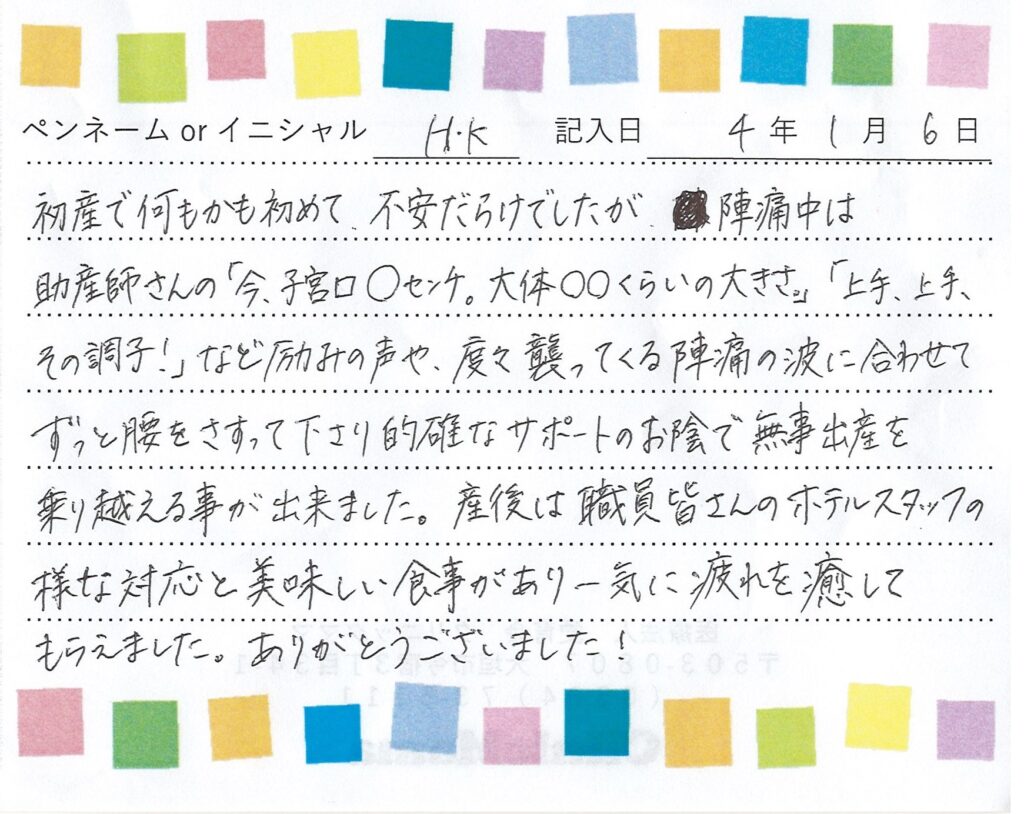 ペンネーム or イニシャル H・K 記入日 4 年 1 月 6 日
初産で何もかも初めて、不安だらけでしたが 陣痛中は
助産師さんの「今、子宮口〇センチ。大体〇〇くらいの大きさ。」「上手、上手、
その調子!」など励みの声や、度々襲ってくる陣痛の波に合わせて
ずっと腰をさすって下さり的確なサポートのお陰で無事出産を
乗り越える事が出来ました。産後は職員皆さんのホテルスタッフの
様な対応と美味しい食事があり一気に疲れを癒して
もらえました。ありがとうございました!